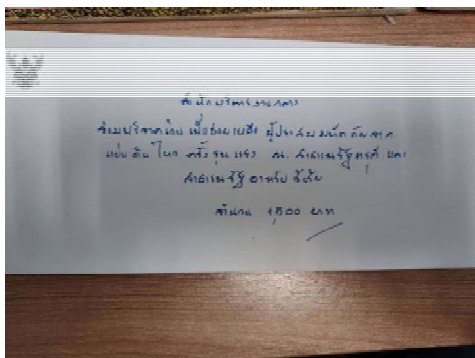 สำนักบริหารงานกลาง
ร่วมบริจาคเงินเพื่อช่วยเหลือ ผู้ประสบภัยพิบัติจาก
แผ่นดินไหว ครั้งรุนแรง ณ สาธารณรัฐตุรกี และ
สาธารณรัฐอาหรับซีเรีย
จำนวน 1,500 บาท